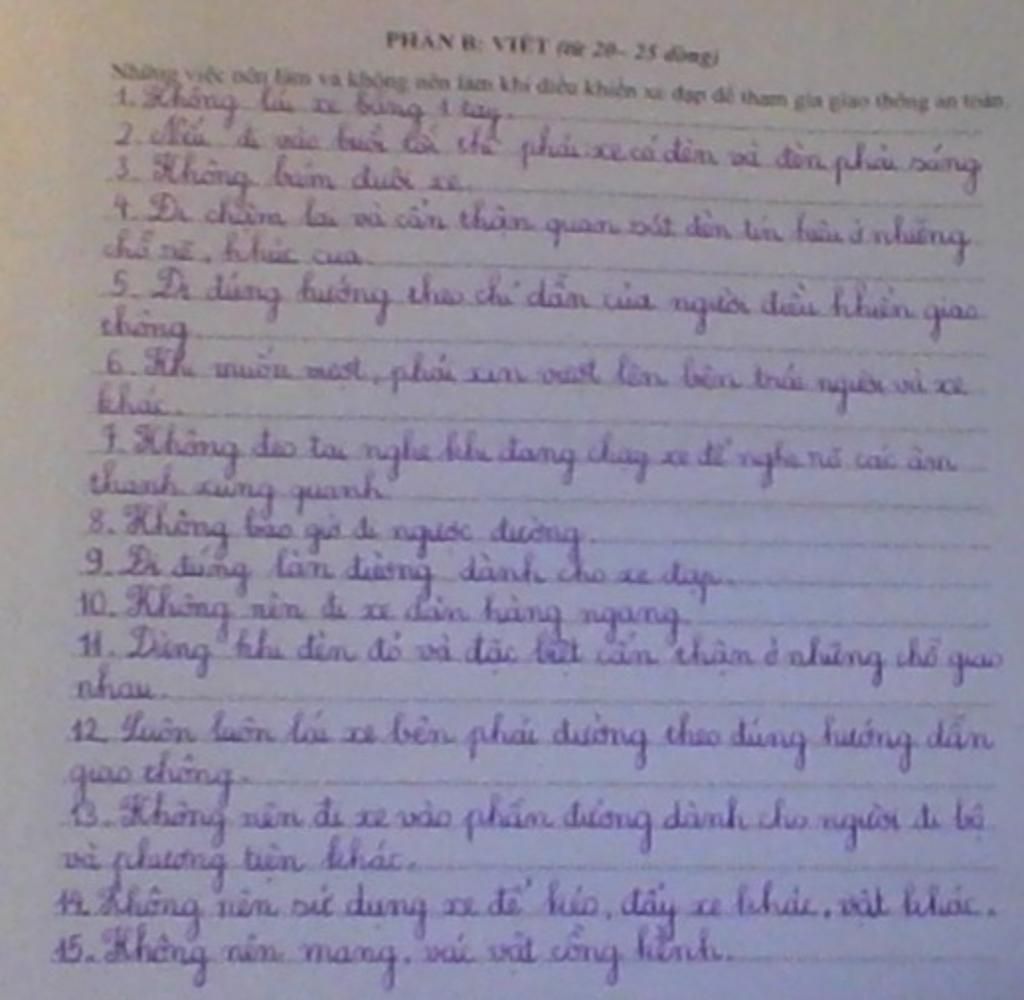 PHẦN B: VIẾT (từ 20- 25 dòng)
Những việc nên làm và không nên làm khi điều khiển xe đạp để tham gia giao thông an toàn.
1. Không lái xe bằng 1 tay.
2. Nếu đi vào buổi tối thì phải xe có đèn và đèn phải sáng
3. Không bám đuôi xe.
4. Đi chậm lại và cẩn thận quan sát đèn tín hiệu ở những
chỗ rẽ, khúc cua.
5. Đi đúng hướng theo chỉ dẫn của người điều khiển giao
thông
6. Khi muốn vượt, phải xin vượt lên bên trái người và xe
khác.
7. Không đeo tai nghe khi đang chạy xe để nghe rõ các âm
thanh xung quanh
8. Không bao giờ đi ngược đường.
9. Đi đúng làn đường dành cho xe đạp.
10. Không nên đi xe dàn hàng ngang.
11. Dừng khi đèn đỏ và đặc biệt cẩn thận ở những chỗ giao
nhau.
12. Luôn luôn lái xe bên phải đường theo đúng hướng dẫn
giao thông.
13. Không nên đi xe vào phần đường dành cho người đi bộ
và phương tiện khác.
14. Không nên sử dụng xe để kéo, đẩy xe khác, vật khác.
15. Không nên mang, vác vật cồng kềnh.